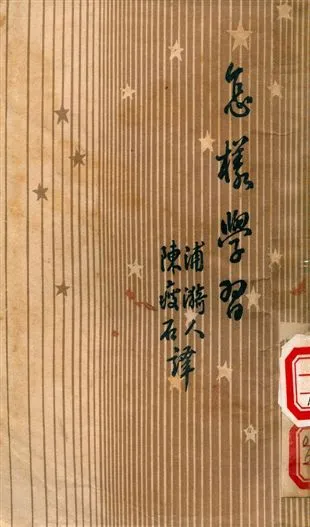 怎樣學習
浦漪人
陳瘦石
譯